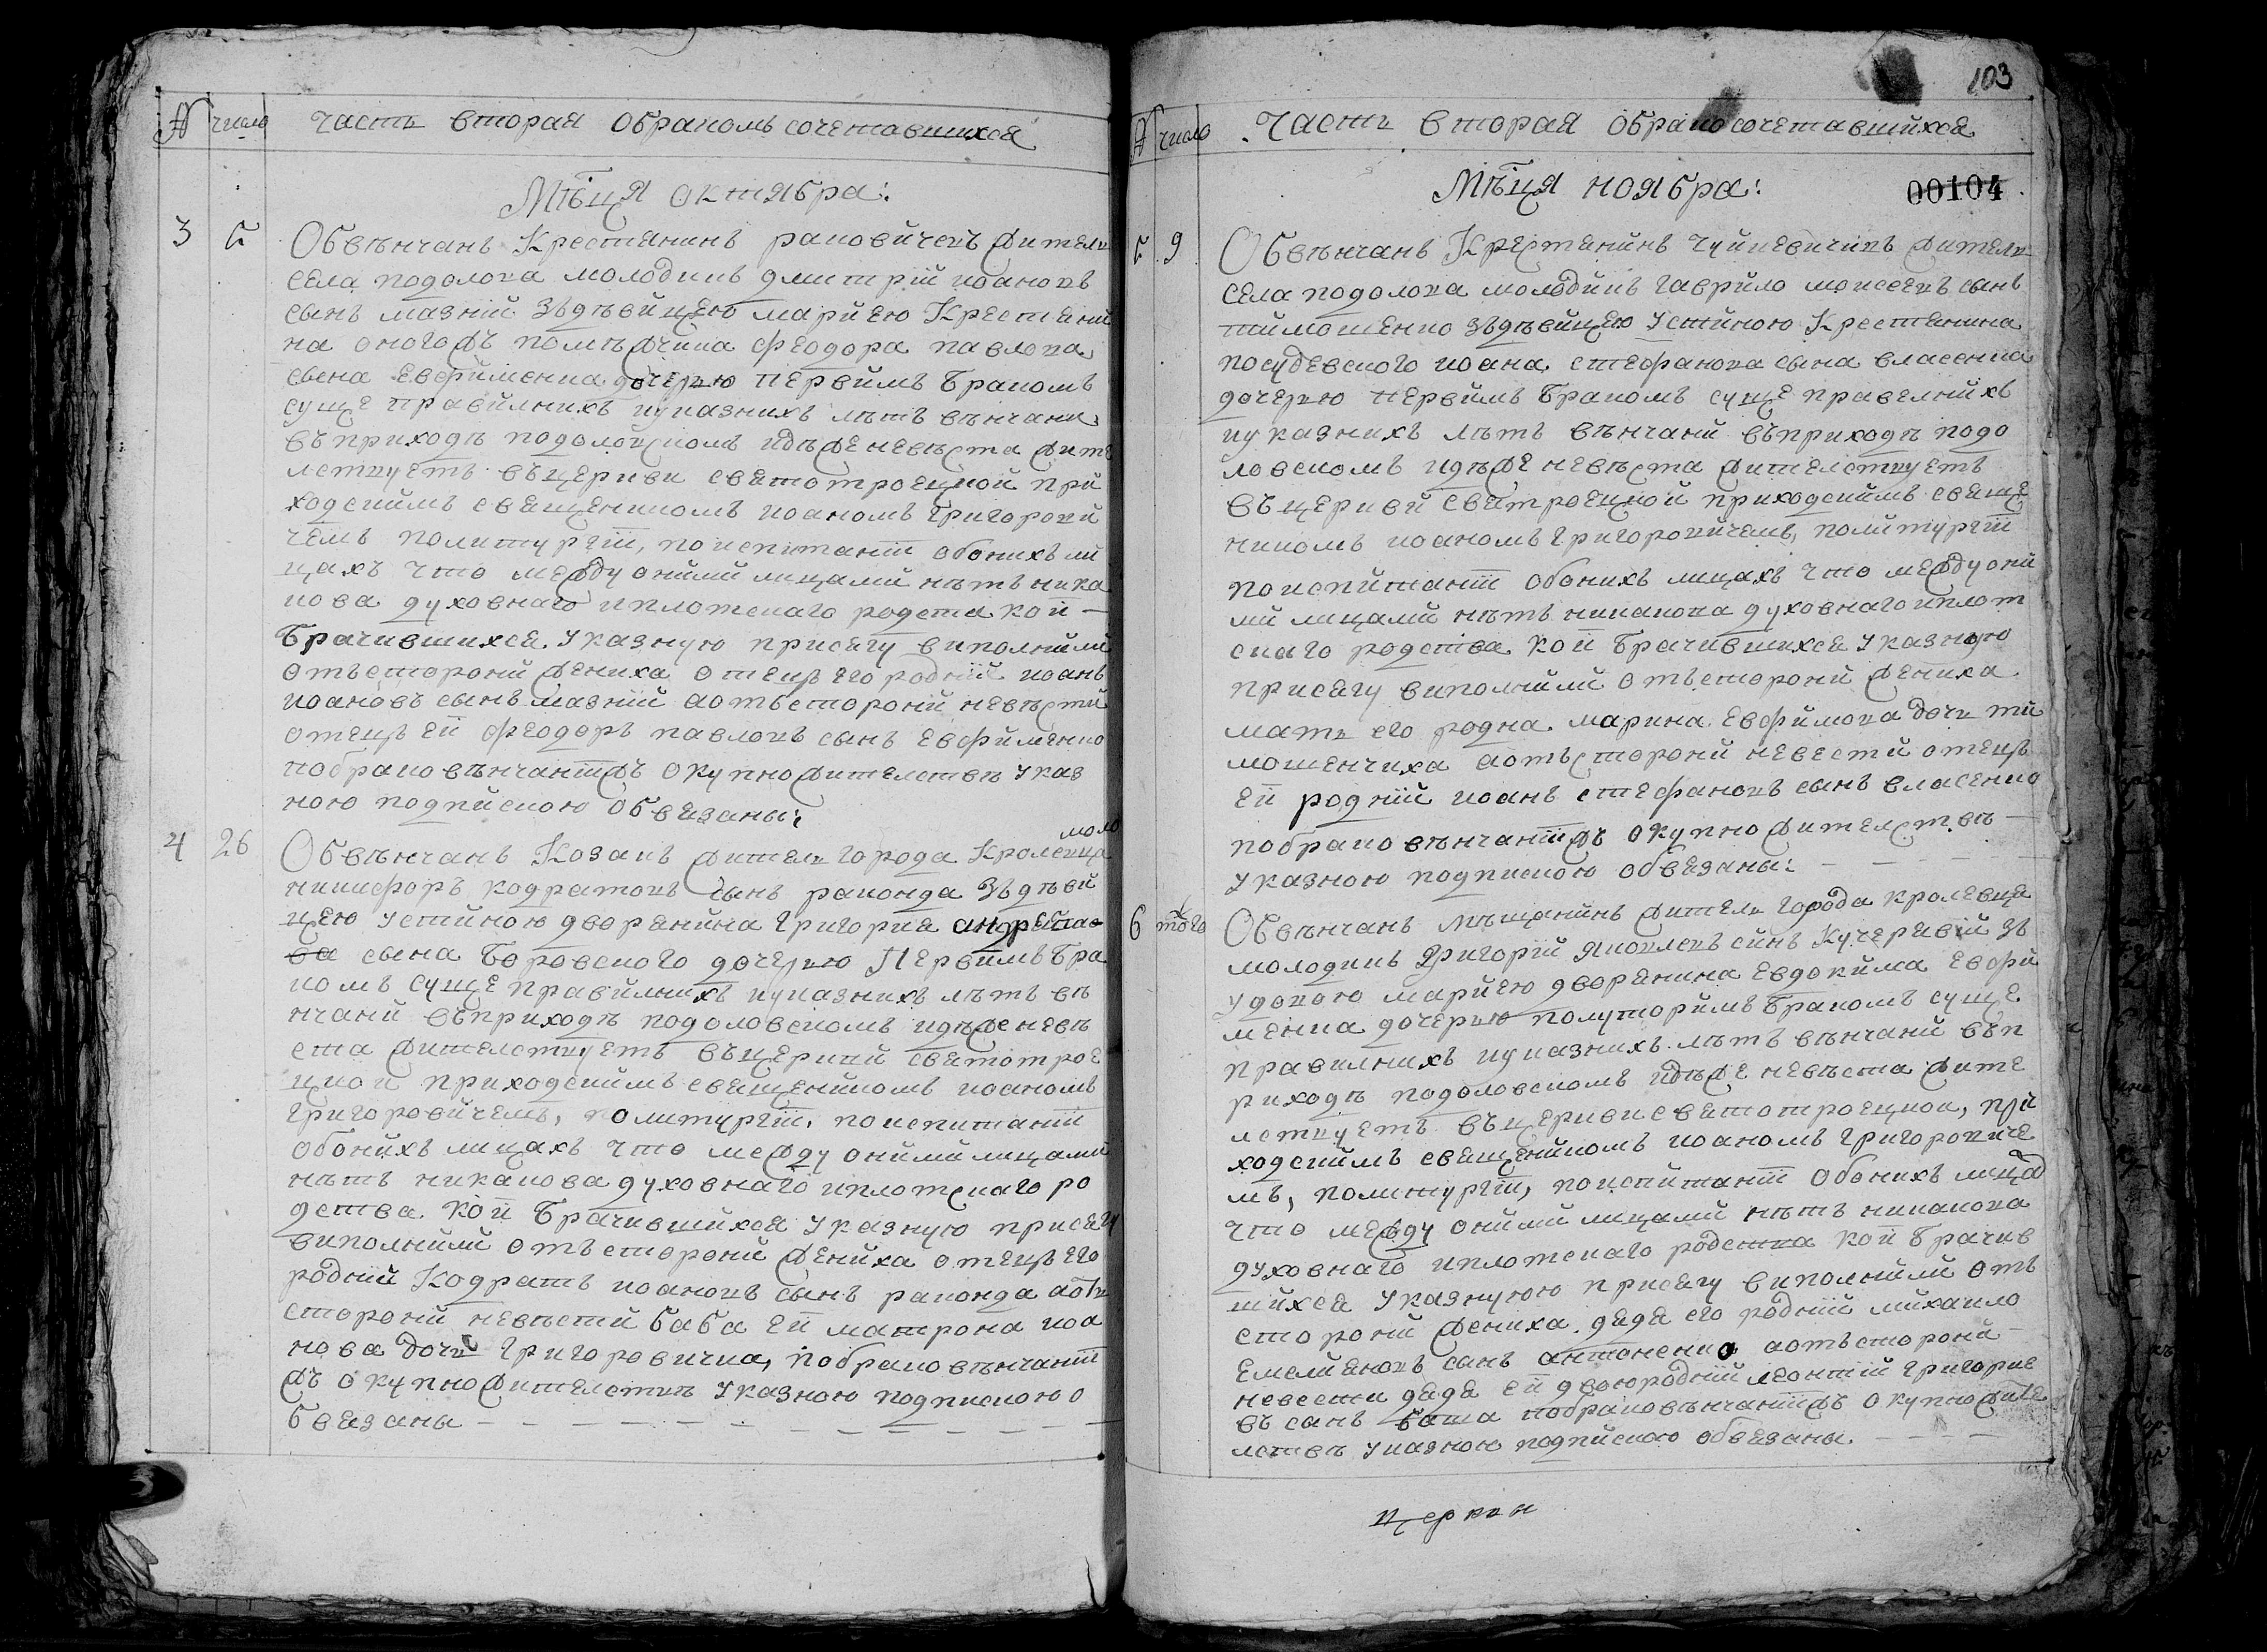 № число Часть вторая о бракомъ сочетавшихся
Мѣсця октября:
3 5 Обвѣнчанъ Крестянинъ раковичевъ житель
села подолова молодикъ дмитрій иоановъ
сынъ мазній зъ дѣвицею мариею Крестяни
на оногожъ помѣжчика феодора павлова
сына евфименка дочерю первимъ бракомъ
суще правилнихъ иуказнихъ лѣтъ вѣнчани
въприходѣ подоловскомъ идѣже невѣста жите
лствуетъ въцеркви святотроецкой при
ходскимъ священникомъ иоаномъ григорови
чемъ политургіи, поиспитаніи обоихъ ли
цахъ что между оними лицами нѣтъ ника
кова духовнаго иплотскаго родства кои —
Брачившихся указную присягу виполнили
отъстороні жениха отецъ его родній иоанъ
иоановъ сынъ мазній аотъстороній невѣсти
отецъ ей феодоръ павловъ сынъ евфименко
побраковѣнчаніижъ окупножителствѣ указ
ною подпискою обвязаны:
4 26 Обвѣнчанъ Козакъ житель города Кролевца моло
никифоръ кодратовъ сынъ раконда зъдѣви
цею устиною дворянина григория андреева
ва сына Боровского дочерю Первимъ Бра
комъ суще правилнихъ иуказнихъ лѣтъ вѣ
нчани въприходѣ подоловскомъ идѣже невѣ
ста жителствуетъ въцеркви святотрое
цкой приходскимъ священикомъ иоаномъ
григоровичемъ, политургіи, поиспитаніи
обонихъ лицахъ что между оними лицами
нѣтъ никакова духовнаго иплотскаго ро
дства кои Брачившихся указную присягу
виполнили отъстороні жениха отецъ его
родній Кодратъ иоановъ сынъ раконда аотъ
стороні невѣсти баба ей матрона иоа
нова дочь григоровичка, побраковѣнчаніи
жъ окупножителствѣ указною подпискою о
бвязаны
103
№ число Часть вторая обрако сочетавшихся
Мѣсця ноября: 00104
5 9 Обвѣнчанъ Крестянинъ чуйкевичивъ житель
села подолова молодикъ гаврило моисеевъ сынъ
тимошенко зъдѣвицею устиною Крестянина
посудевского иоана стефанова сына власенка
дочерю первимъ Бракомъ суще правелнихъ
иуказнихъ лѣтъ вѣнчани въприходѣ подо
ловскомъ идѣже невѣста жителствуетъ
въцеркви святроецкой приходскимъ свяще
никомъ иоаномъ григоровичемъ, политургіи
поиспитаніи обонихъ лицахъ что между они
ми лицами нѣтъ никакова духовнаго иплот
скаго родства кои Брачившихся указную
присягу виполнили отъстороні жениха
мать его родна марина евфимова дочь ти
мошенчиха аотъстороні невести отецъ
ей родній иоанъ стефановъ сынъ власенко
побраковѣнчаніижъ окупножителствѣ —
указною подпискою обвязаны:
6 того Обвѣнчанъ мѣщанинъ житель города кролевца
молодикъ григорій яковлевъ синъ Кучерявій зъ
удовою мариею дворянина евдокима евфи
менка дочерю полуторимъ Бракомъ суще
правилнихъ иуказнихъ лѣтъ вѣнчани въп
риходѣ подоловскомъ идѣже невѣста жите
лствуетъ въцеркви святотроецкой, при
ходскимъ священикомъ иоаномъ григоровиче
мъ, политургіи, поиспитаніи обонихъ лицах
что между оними лицами нѣтъ никакова
духовнаго иплотскаго родства кои Брачив
шихся указнуюю присягу виполнили отъ
стороні жениха дядя его родній михаило
емелияновъ синъ антоненко аотъстороні
невести дядя ей двоюродній леонтій григорие
въ синъ баша побраковѣнчаніижъ окупножите
лствѣ указною подпискою обвязаны.
церкви